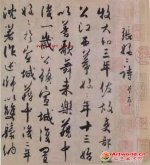 張好好詩并序
牧大和三年佐故吏部沈
公江西幕好好年十三始
以善歌来樂籍中
後一歲公移鎮宣城復置好
好於宣城籍中後二歲為
沈著作述師以雙鬟納